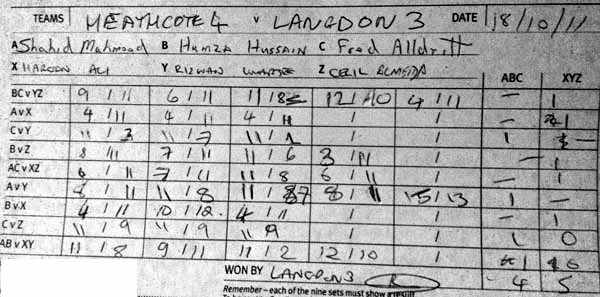 TEAMS HEATHCOTE 4 V LANGDON 3 DATE 18/10/11
A Shahid Mahmood B HUMZA HUSSAIN C Fred Alldritt
X HAROON ALI Y RIZWAN Z CECIL ALMEIDA ABC XYZ
BC v YZ 9 / 11 6 / 11 11 / 8 12 / 10 4 / 11 — 1
A v X 4 / 11 4 / 11 4 / 11 / / — 1
C v Y 11 / 3 11 / 7 11 / / / 1 —
B v Z 8 / 11 7 / 11 11 / 6 3 / 11 / — 1
AC v XZ 6 / 11 7 / 11 11 / 8 6 / 11 / — 1
A v Y 4 / 11 11 / 8 11 / 7 8 / 11 15 / 13 1 —
B v X 4 / 11 10 / 12 4 / 11 / / — 1
C v Z 11 / 9 11 / 9 11 / 9 / / 1 0
AB v XY 11 / 8 9 / 11 11 / 2 12 / 10 / 1 0
WON BY LANGDON 3 4 5
Remember – each of the nine sets must show a result